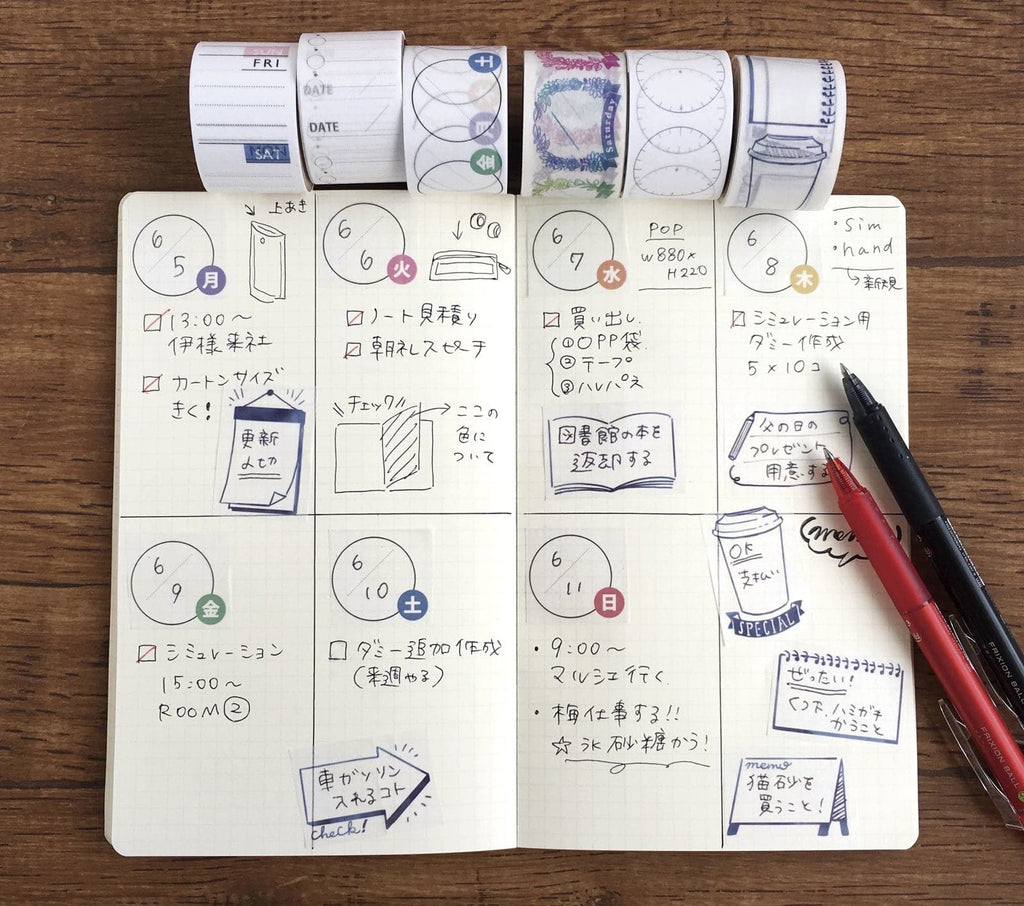 SUN
FRI
SAT
DATE
DATE
土
金
Saturday
6/5 月
上あき
13:00〜
伊様来社
カートンサイズ
きく!
更新
〆切
6/6 火
ノート見積り
朝礼スピーチ
チェック
ここの
色に
ついて
6/7 水
POP
W880×
H220
買い出し
①OPP袋
②テープ
③ハレパネ
図書館の本を
返却する
6/8 木
・sim
・hand
シミュレーション用
ダミー作成
5×10コ
父の日の
プレゼント
用意する
6/9 金
シミュレーション
15:00〜
ROOM②
6/10 土
ダミー追加作成
(来週やる)
車ガソリン
入れるコト
check!
6/11 日
・9:00〜
マルシェ行く
・梅仕事する!!
☆氷砂糖かう!
OK
支払い
SPECIAL
ぜったい!
くつ下、ハミガキ
かうこと
memo
猫砂を
買うこと!
FRIXION BALL
FRIXION BALL